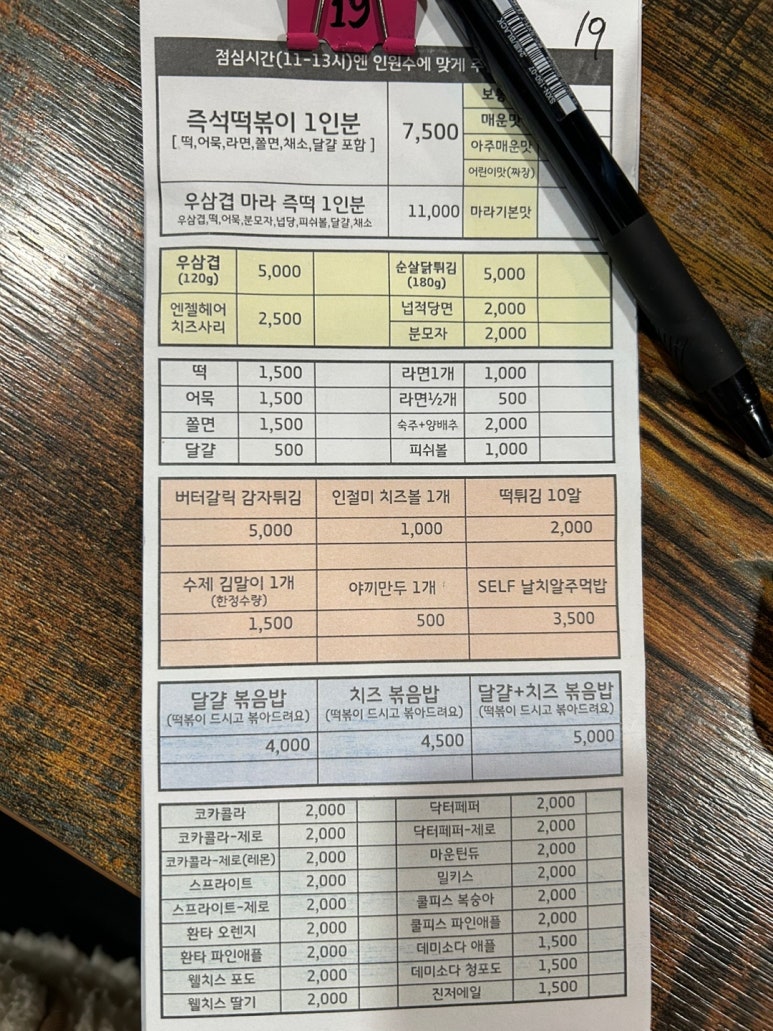 19
19
점심시간(11-13시)엔 인원수에 맞게
즉석떡볶이 1인분
[ 떡,어묵,라면,쫄면,채소,달걀 포함 ]
7,500
매운맛
아주매운맛
어린이맛(짜장)
우삼겹 마라 즉떡 1인분
우삼겹,떡,어묵,분모자,넙당,피쉬볼,달걀,채소
11,000 마라기본맛
우삼겹
(120g)
5,000
순살닭튀김
(180g)
5,000
엔젤헤어
치즈사리
2,500
넙적당면 2,000
분모자 2,000
떡 1,500 라면1개 1,000
어묵 1,500 라면½개 500
쫄면 1,500 숙주+양배추 2,000
달걀 500 피쉬볼 1,000
버터갈릭 감자튀김 인절미 치즈볼 1개 떡튀김 10알
5,000 1,000 2,000
수제 김말이 1개
(한정수량)
야끼만두 1개 SELF 날치알주먹밥
1,500 500 3,500
달걀 볶음밥 치즈 볶음밥 달걀+치즈 볶음밥
(떡볶이 드시고 볶아드려요) (떡볶이 드시고 볶아드려요) (떡볶이 드시고 볶아드려요)
4,000 4,500 5,000
코카콜라 2,000 닥터페퍼 2,000
코카콜라-제로 2,000 닥터페퍼-제로 2,000
코카콜라-제로(레몬) 2,000 마운틴듀 2,000
스프라이트 2,000 밀키스 2,000
스프라이트-제로 2,000 쿨피스 복숭아 2,000
환타 오렌지 2,000 쿨피스 파인애플 2,000
환타 파인애플 2,000 데미소다 애플 1,500
웰치스 포도 2,000 데미소다 청포도 1,500
웰치스 딸기 2,000 진저에일 1,500